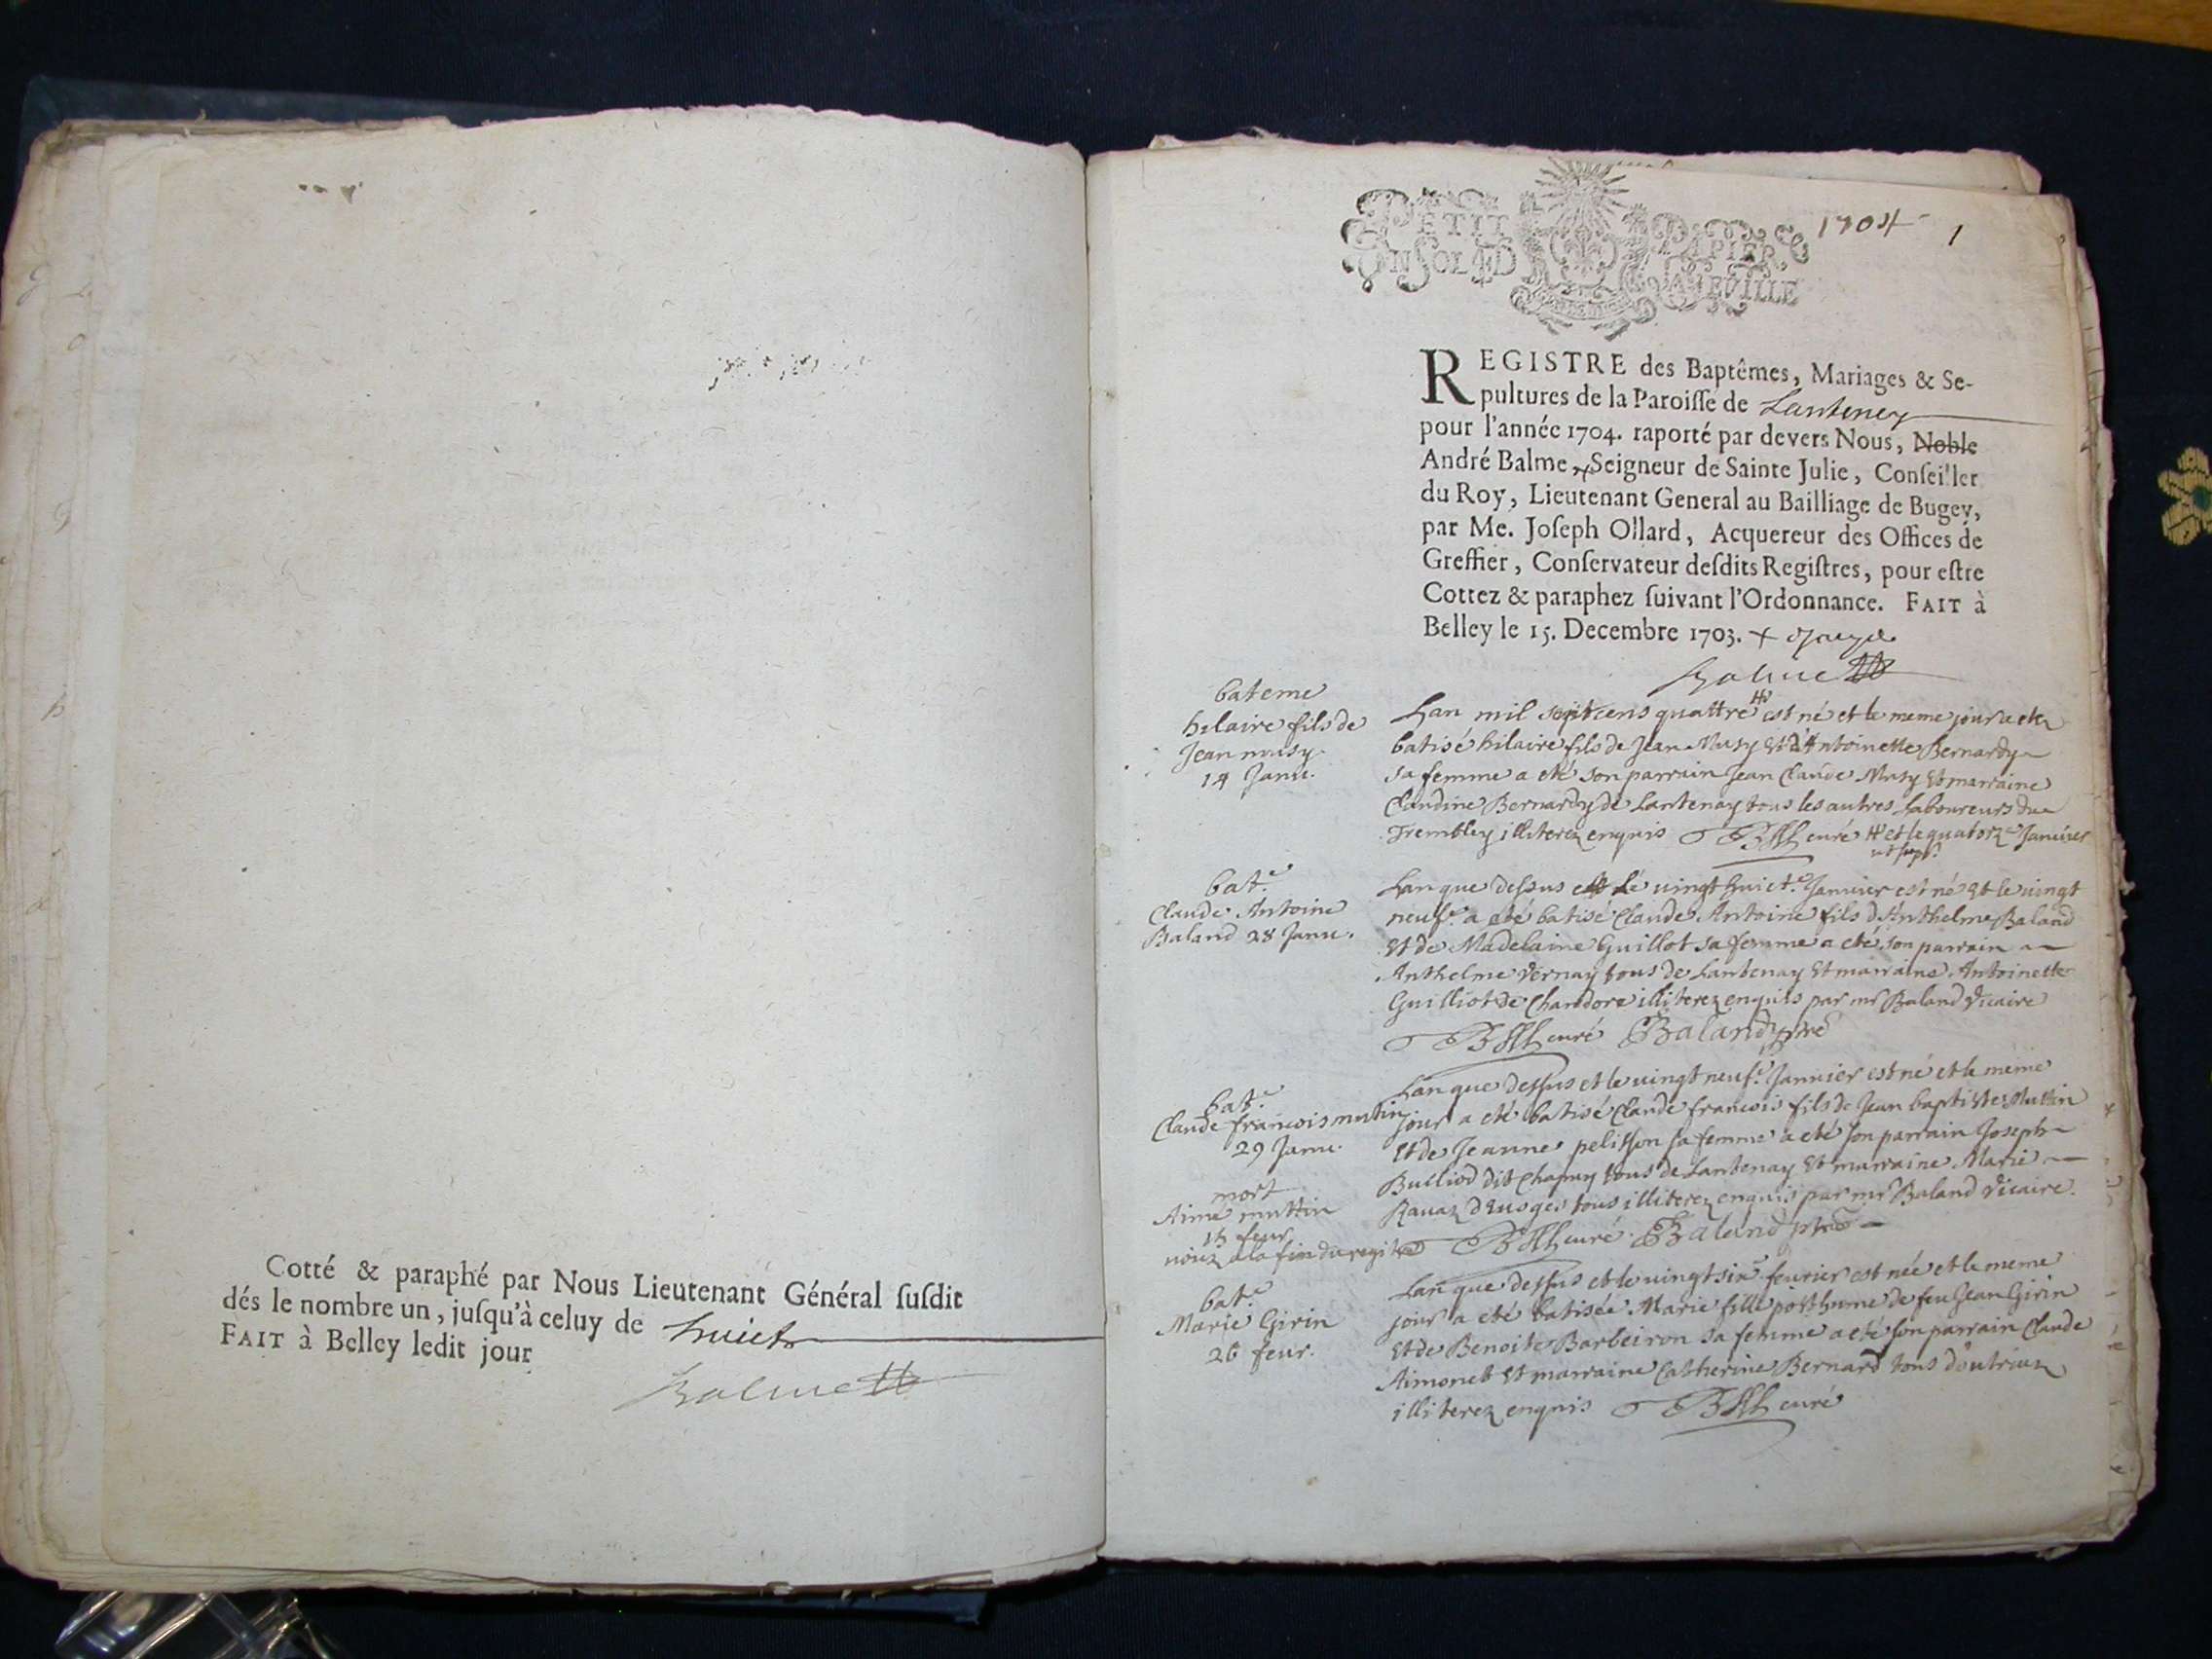 Cotté & paraphé par Nous Lieutenant Général susdit
dés le nombre un, jusqu'à celuy de huict
FAIT à Belley ledit jour
Balme
PETIT PAPIER
UN SOL 4 D LA FEUILLE
1704 1
REGISTRE des Baptêmes, Mariages & Se-
pultures de la Paroisse de Lantenay
pour l'année 1704. raporté par devers Nous, Noble
André Balme, Seigneur de Sainte Julie, Conseiller
du Roy, Lieutenant General au Bailliage de Bugey,
par Me. Joseph Ollard, Acquereur des Offices de
Greffier, Conservateur desdits Registres, pour estre
Cottez & paraphez suivant l'Ordonnance. FAIT à
Belley le 15. Decembre 1703. +
Balme
bateme
hilaire fils de
Jean musy
14 Janu.
Lan mil septcens quattre est né et le meme jour a eté
batisé hilaire fils de Jean Musy et d'Antoinette Bernardy
sa femme a eté son parrain Jean Claude Musy et marraine
Claudine Bernardy de Lantenay tous les autres laboureurs du
Trembley illiterez enquis curé et le quatorz.e Janvier
ut sup.
bat.e
Claude Antoine
Baland 28 Janu.
Lan que dessus et le vingt huict.e Janvier est né et le vingt
neuf.e a eté batisé Claude Antoine fils d'Anthelme Baland
et de Madelaine Guillot sa femme a eté son parrain
Anthelme Vernay tous de Lantenay et marraine Antoinette
Guilliot de Chandore illiterez enquis par mr Baland vicaire
curé Baland ptre
bat.e
Claude francois muttin
29 Janu.
Lan que dessus et le vingt neuf.e Janvier est né et le meme
jour a eté batisé Claude francois fils de Jean baptiste Muttin
et de Jeanne pelisson sa femme a eté son parrain Joseph
Bulliod dit Chapuy tous de Lantenay et marraine Marie
Ravaz d'Eusges tous illiterez enquis par mr Baland vicaire.
curé Baland ptre
mort
Aimé muttin
15 feur
a la fin du regitre
bat.e
Marie Girin
26 feur.
Lan que dessus et le vingt six.e fevrier est née et le meme
jour a eté batisée Marie fille posthume de feu Jean Girin
et de Benoite Barbeiron sa femme a eté son parrain Claude
Aimonet et marraine Catherine Bernard tous d'outriaz
illiterez enquis curé